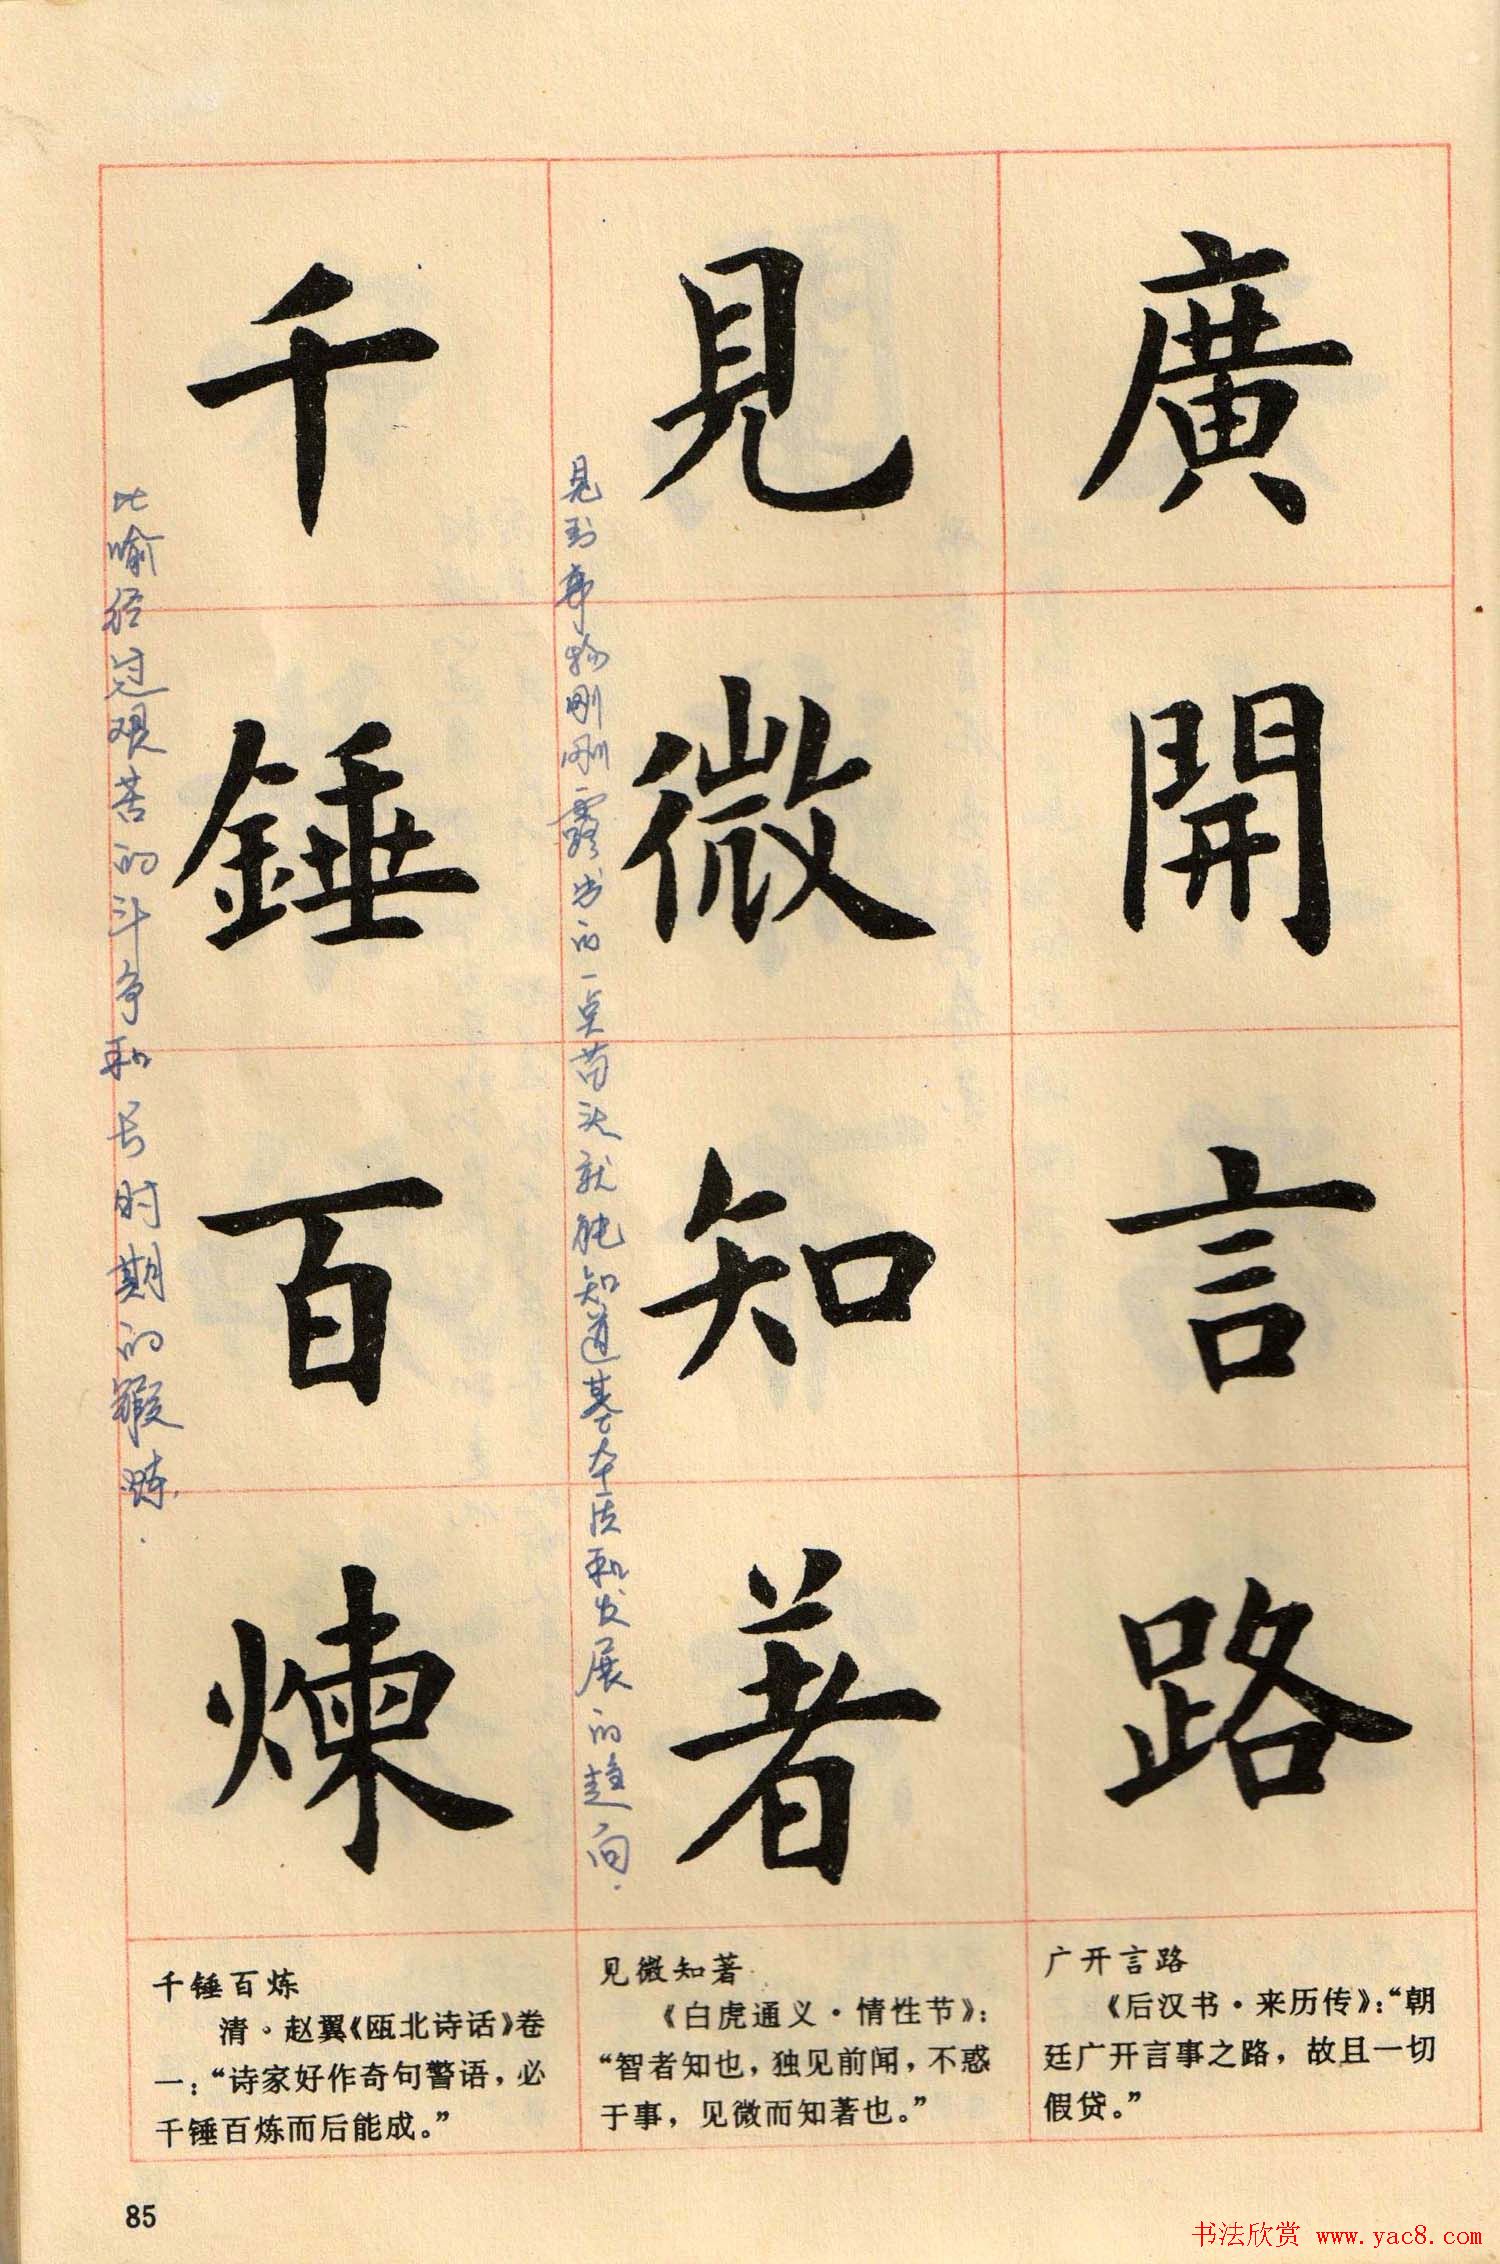 廣開言路
見微知著
千錘百煉
见到事物刚刚露出的一点苗头就能知道其本质和发展的趋向.
比喻经过艰苦的斗争和长时期的锻炼.
广开言路
《后汉书·来历传》：“朝
廷广开言事之路，故且一切
假贷。”
见微知著
《白虎通义·情性节》：
“智者知也，独见前闻，不惑
于事，见微而知著也。”
千锤百炼
清·赵翼《瓯北诗话》卷
一：“诗家好作奇句警语，必
千锤百炼而后能成。”
85
书法欣赏 www.yac8.com